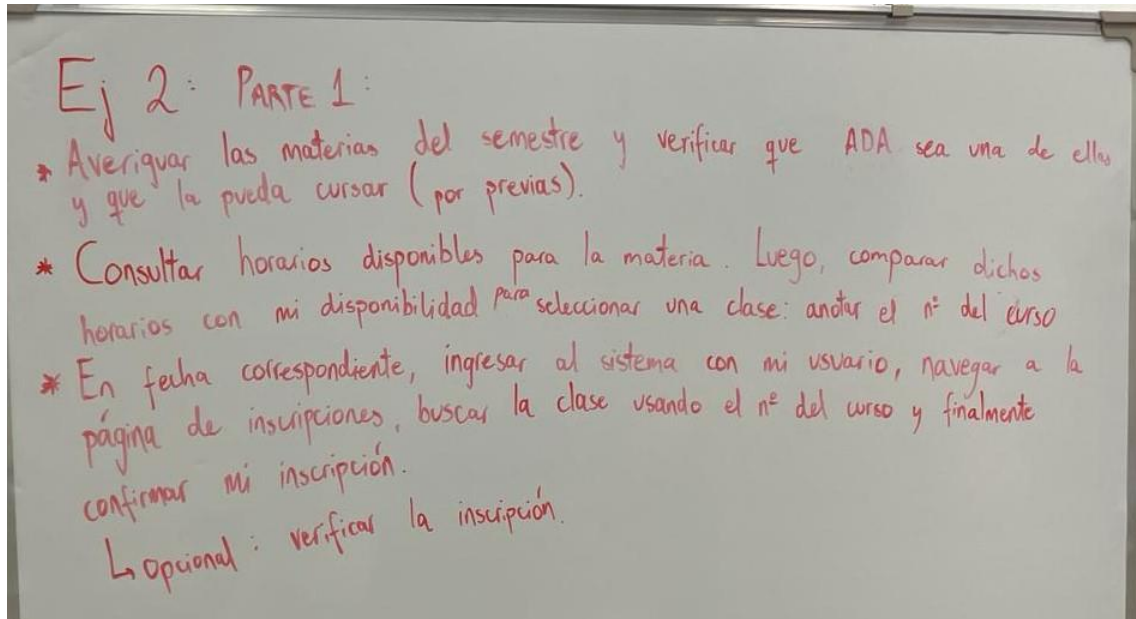 Ej 2: PARTE 1:
* Averiguar las materias del semestre y verificar que ADA sea una de ellas
y que la pueda cursar (por previas).
* Consultar horarios disponibles para la materia. Luego, comparar dichos
horarios con mi disponibilidad para seleccionar una clase: anotar el nº del curso
* En fecha correspondiente, ingresar al sistema con mi usuario, navegar a la
página de inscripciones, buscar la clase usando el nº del curso y finalmente
confirmar mi inscripción.
↳ opcional: verificar la inscripción.